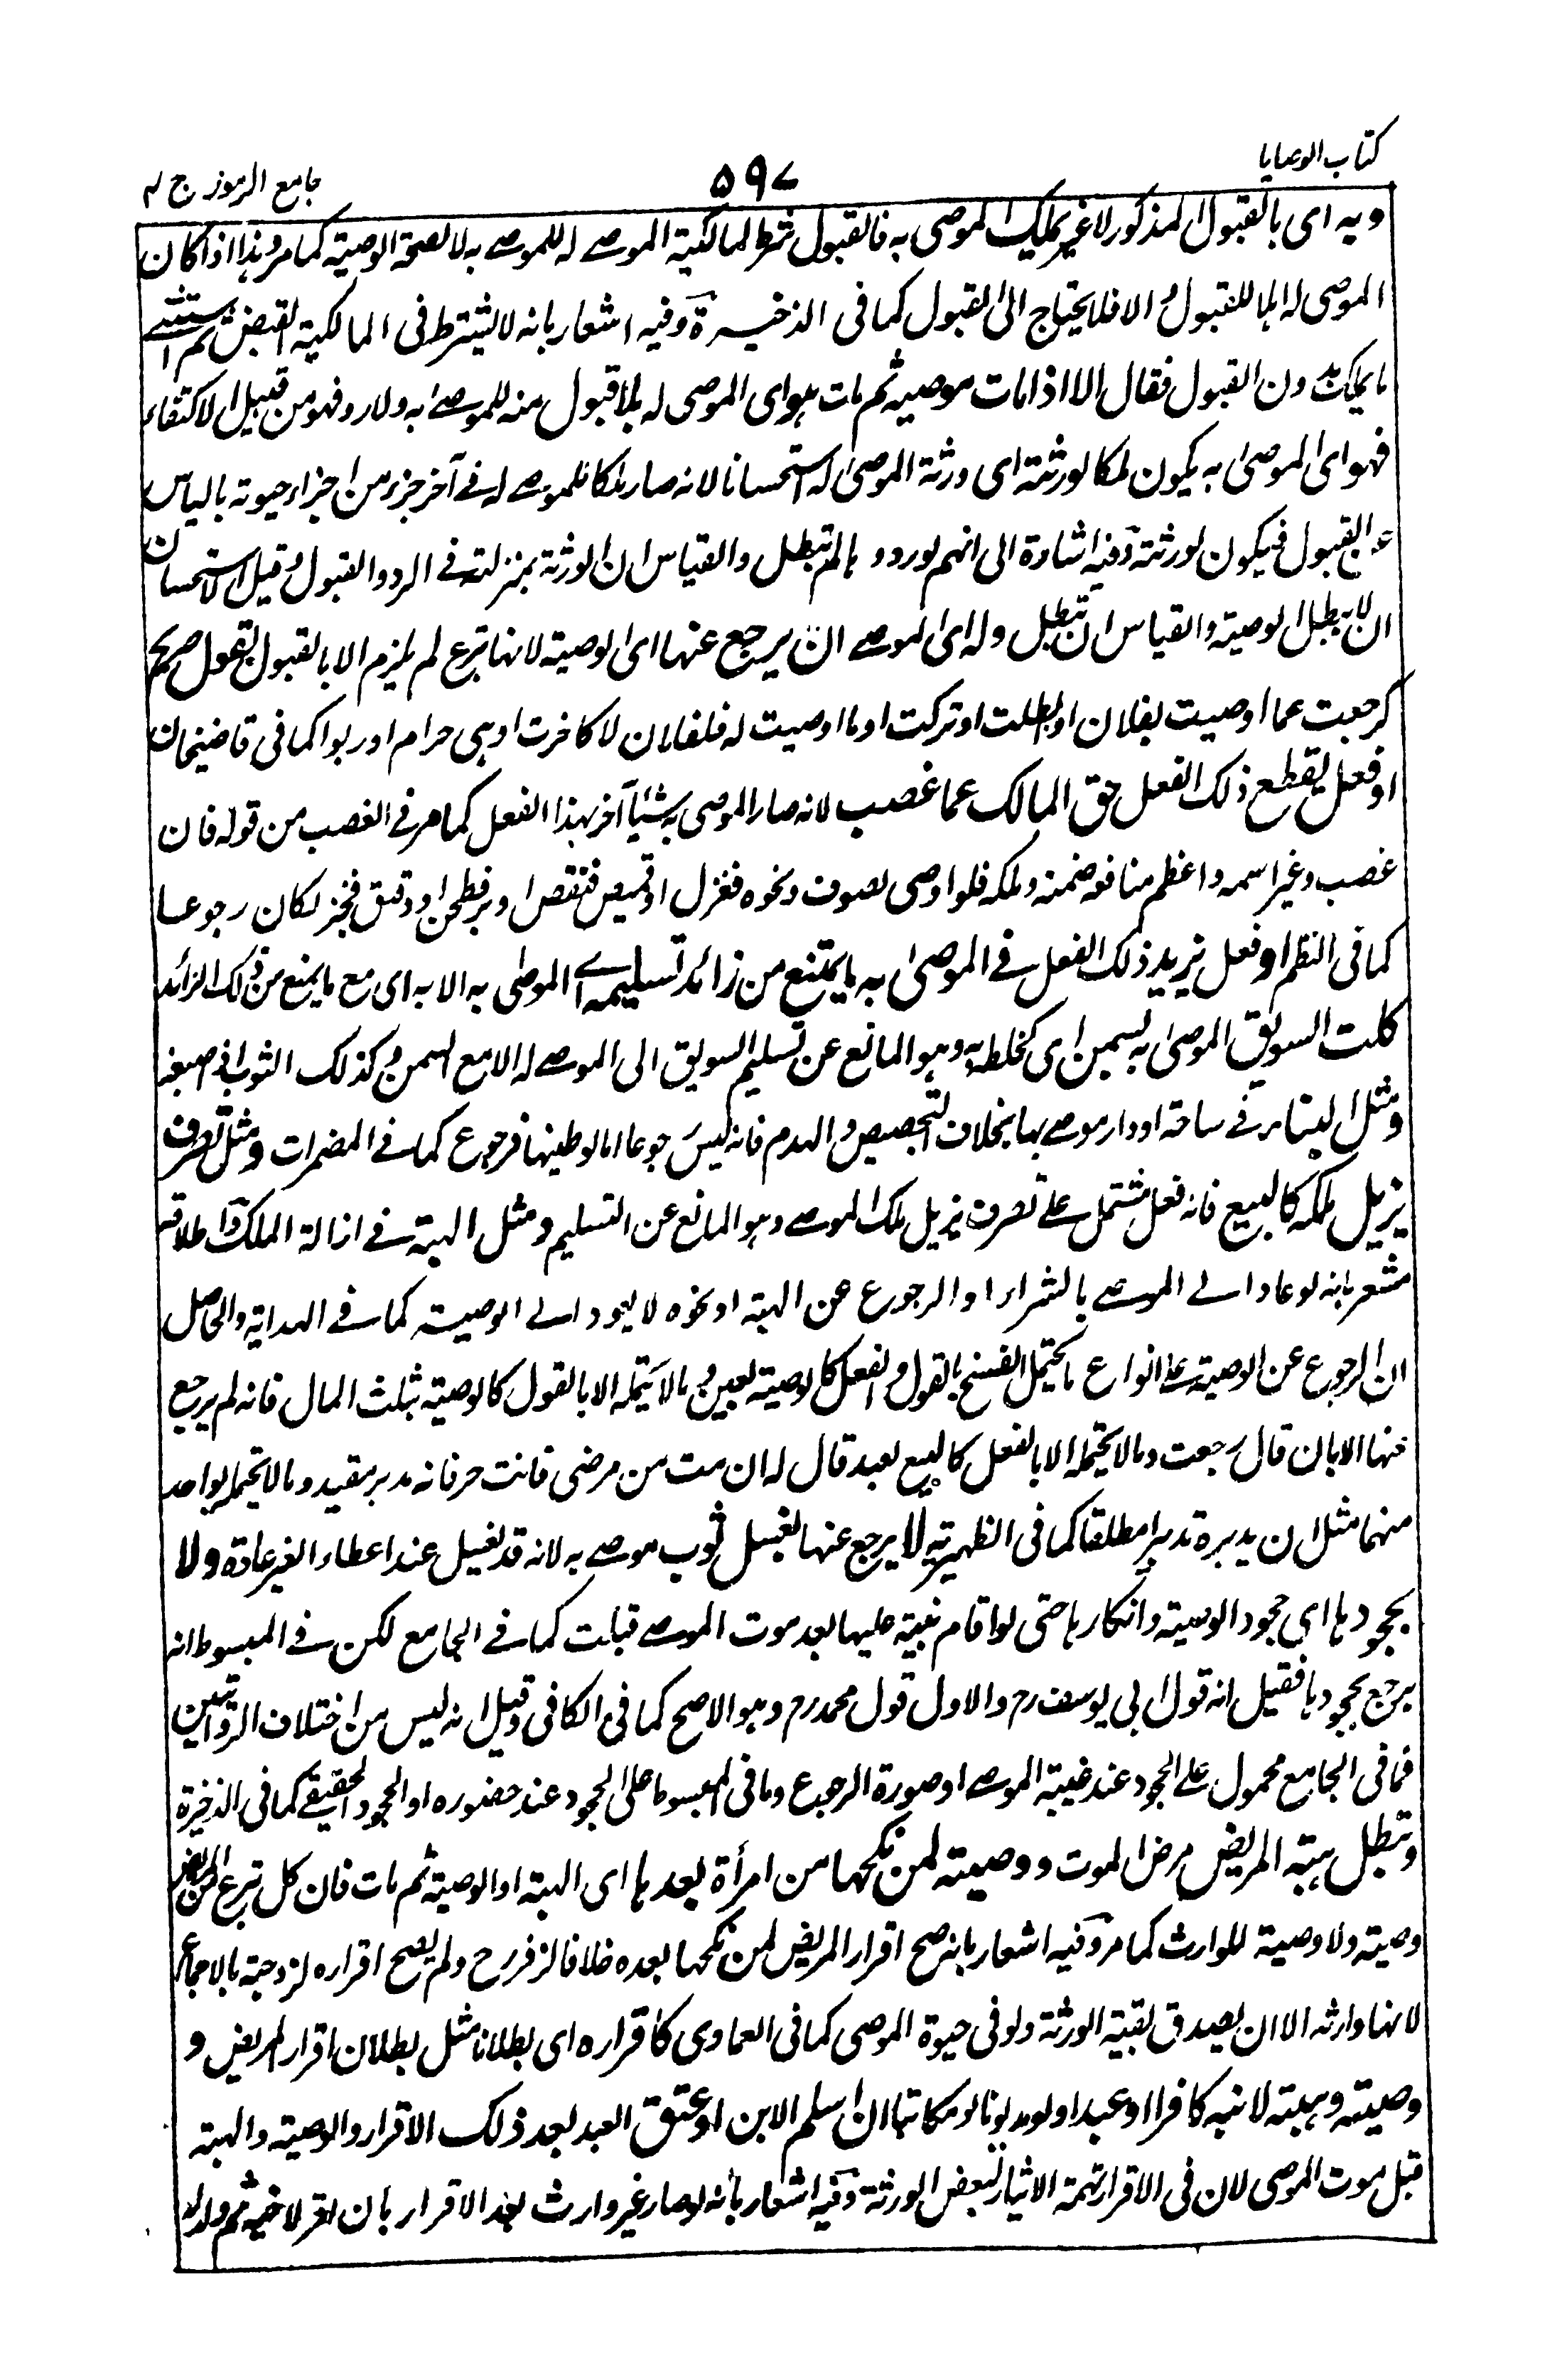 كتاب الوصايا
۵۹۷
جامع الرموز ج ۲
وبه اى بالقبول المذكور لا غير يملك الموصى به فالقبول شرط لمالكية الموصے له للموصے به لا لصحة الوصية كما مر وهذا اذا كان
الموصى له اهلا للقبول والا فلا يحتاج الى القبول كما فى الذخيرة وفيه اشعار بانه لا يشترط فى المالكية القبض ثم استثنے
ما يملك بدون القبول فقال الا اذا مات موصيه ثم مات هو اى الموصى له بلا قبول منه للموصے به ولا رد فهو من قبيل الاكتفاء
فهو اى الموصى به يكون ملكا لورثته اى ورثة الموصى له استحسانا لانه صار ملكا للموصے له فے آخر جزء من اجزاء حيوته بالياس
عن القبول فيكون لورثته وفيه اشارة الى انهم لو ردوها لم تبطل والقياس ان الورثة بمنزلته فے الرد والقبول وقيل الاستحسان
ان لا تبطل الوصية والقياس ان تبطل وله اى الموصے ان يرجع عنها اى الوصية لانها تبرع لم يلزم الا بالقبول بقول صريح
كرجعت عما اوصيت بفلان او ابطلت او تركت او ما اوصيت له فلفلان لا كاخرت او هى حرام او ربوا كما فى قاضيخان
او فعل يقطع ذلك الفعل حق المالك عما غصب لانه صار الموصى به شيئا آخر بهذا الفعل كما مر فے الغصب من قوله فان
غصب وغير اسمه واعظم منافعه ضمنه وملكه فلو اوصى بصوف ونحوه فغزل او قميص فنقض او بر فطحن او دقيق فخبز لكان رجوعا
كما فى النظم او فعل يزيد ذلك الفعل فے الموصى به ما يمتنع من زائد تسليمه اے الموصى به الا به اى مع ما يمنع من ذلك الزائد
كلت السويق الموصى به بسمن اى كخلطه به وهو المانع عن تسليم السويق الى الموصے له الا مع السمن وكذلك الثوب اذا صبغه
ومثل البناء فے ساحة او دار موصے بها بخلاف التجصيص والهدم فانه ليس رجوعا اما لو طينها فرجوع كما فے المضمرات ومثل تصرف
يزيل ملكه كالبيع فانه فعل مشتمل علے تصرف يزيل ملك الموصے وهو المانع عن التسليم ومثل الهبة فے ازالة الملك واطلاقه
مشعر بانه لو عاد الے الموصے بالشراء او الرجوع عن الهبة او نحوه لا يعود الے الوصية كما فے الهداية والحاصل
ان الرجوع عن الوصية علے انواع ما يحتمل الفسخ بالقول والفعل كالوصية بعين وما لا يحتمله الا بالقول كالوصية بثلث المال فانه لم يرجع
عنها الا بان قال رجعت وما لا يحتمله الا بالفعل كالبيع لعبد قال له ان مت من مرضى فانت حر فانه مدبر مقيد وما لا يحتمله بواحد
منهما مثل ان يدبره تدبيرا مطلقا كما فى الظهيرية لا يرجع عنها بغسل ثوب موصے به لانه قد يغسل عند اعطاء الغير عادة ولا
بجحودها اى جحود الوصية وانكارها حتى لو اقام بينة عليها بعد موت الموصے قبلت كما فے الجامع لكن فے المبسوط انه
يرجع بجحودها فقيل انه قول ابى يوسف رح والاول قول محمد رح وهو الاصح كما فى الكافى وقيل انه ليس من اختلاف الروايتين
فما فى الجامع محمول علے الجحود عند غيبة الموصے او صورة الرجوع وما فى المبسوط على الجحود عند حضوره او الجحود الحقيقے كما فى الذخيرة
وتبطل هبة المريض مرض الموت ووصيته لمن نكحها من امرأة بعدها اى الهبة او الوصية ثم مات فان كل تبرع من المريض
وصيته ولا وصية للوارث كما مر وفيه اشعار بانه صح اقرار المريض لمن نكحها بعده خلافا لزفر رح ولم يصح اقراره لزوجته بالاجماع
لانها وارثه الا ان يصدق بقية الورثة ولو فى حيوة الموصى كما فى العمادى كاقراره اى بطلانا مثل بطلان اقرار المريض و
وصيته وهبته لابنه كافرا او عبدا ولو مديونا او مكاتبا ان اسلم الابن او عتق العبد بعد ذلك الاقرار والوصية والهبة
قبل موت الموصى لان فى الاقرار تهمة الايثار لبعض الورثة وفيه اشعار بانه لو صار غير وارث بعد الاقرار بان اقر لاخيه ثم ولد له